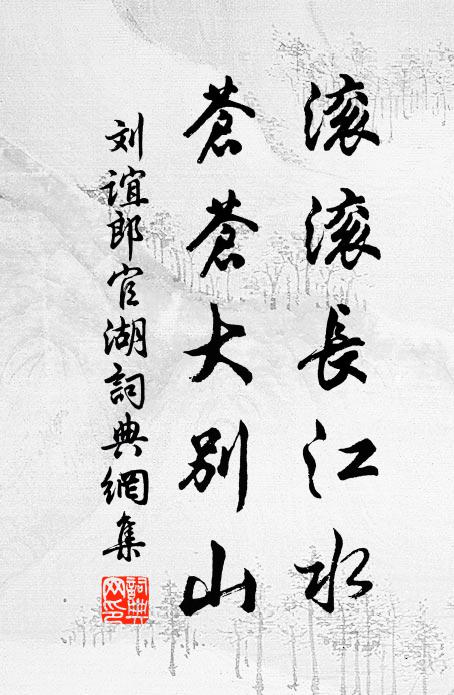 滚滚長江水
蒼蒼大別山
刘谊郎官湖詞典網集
詞典網印